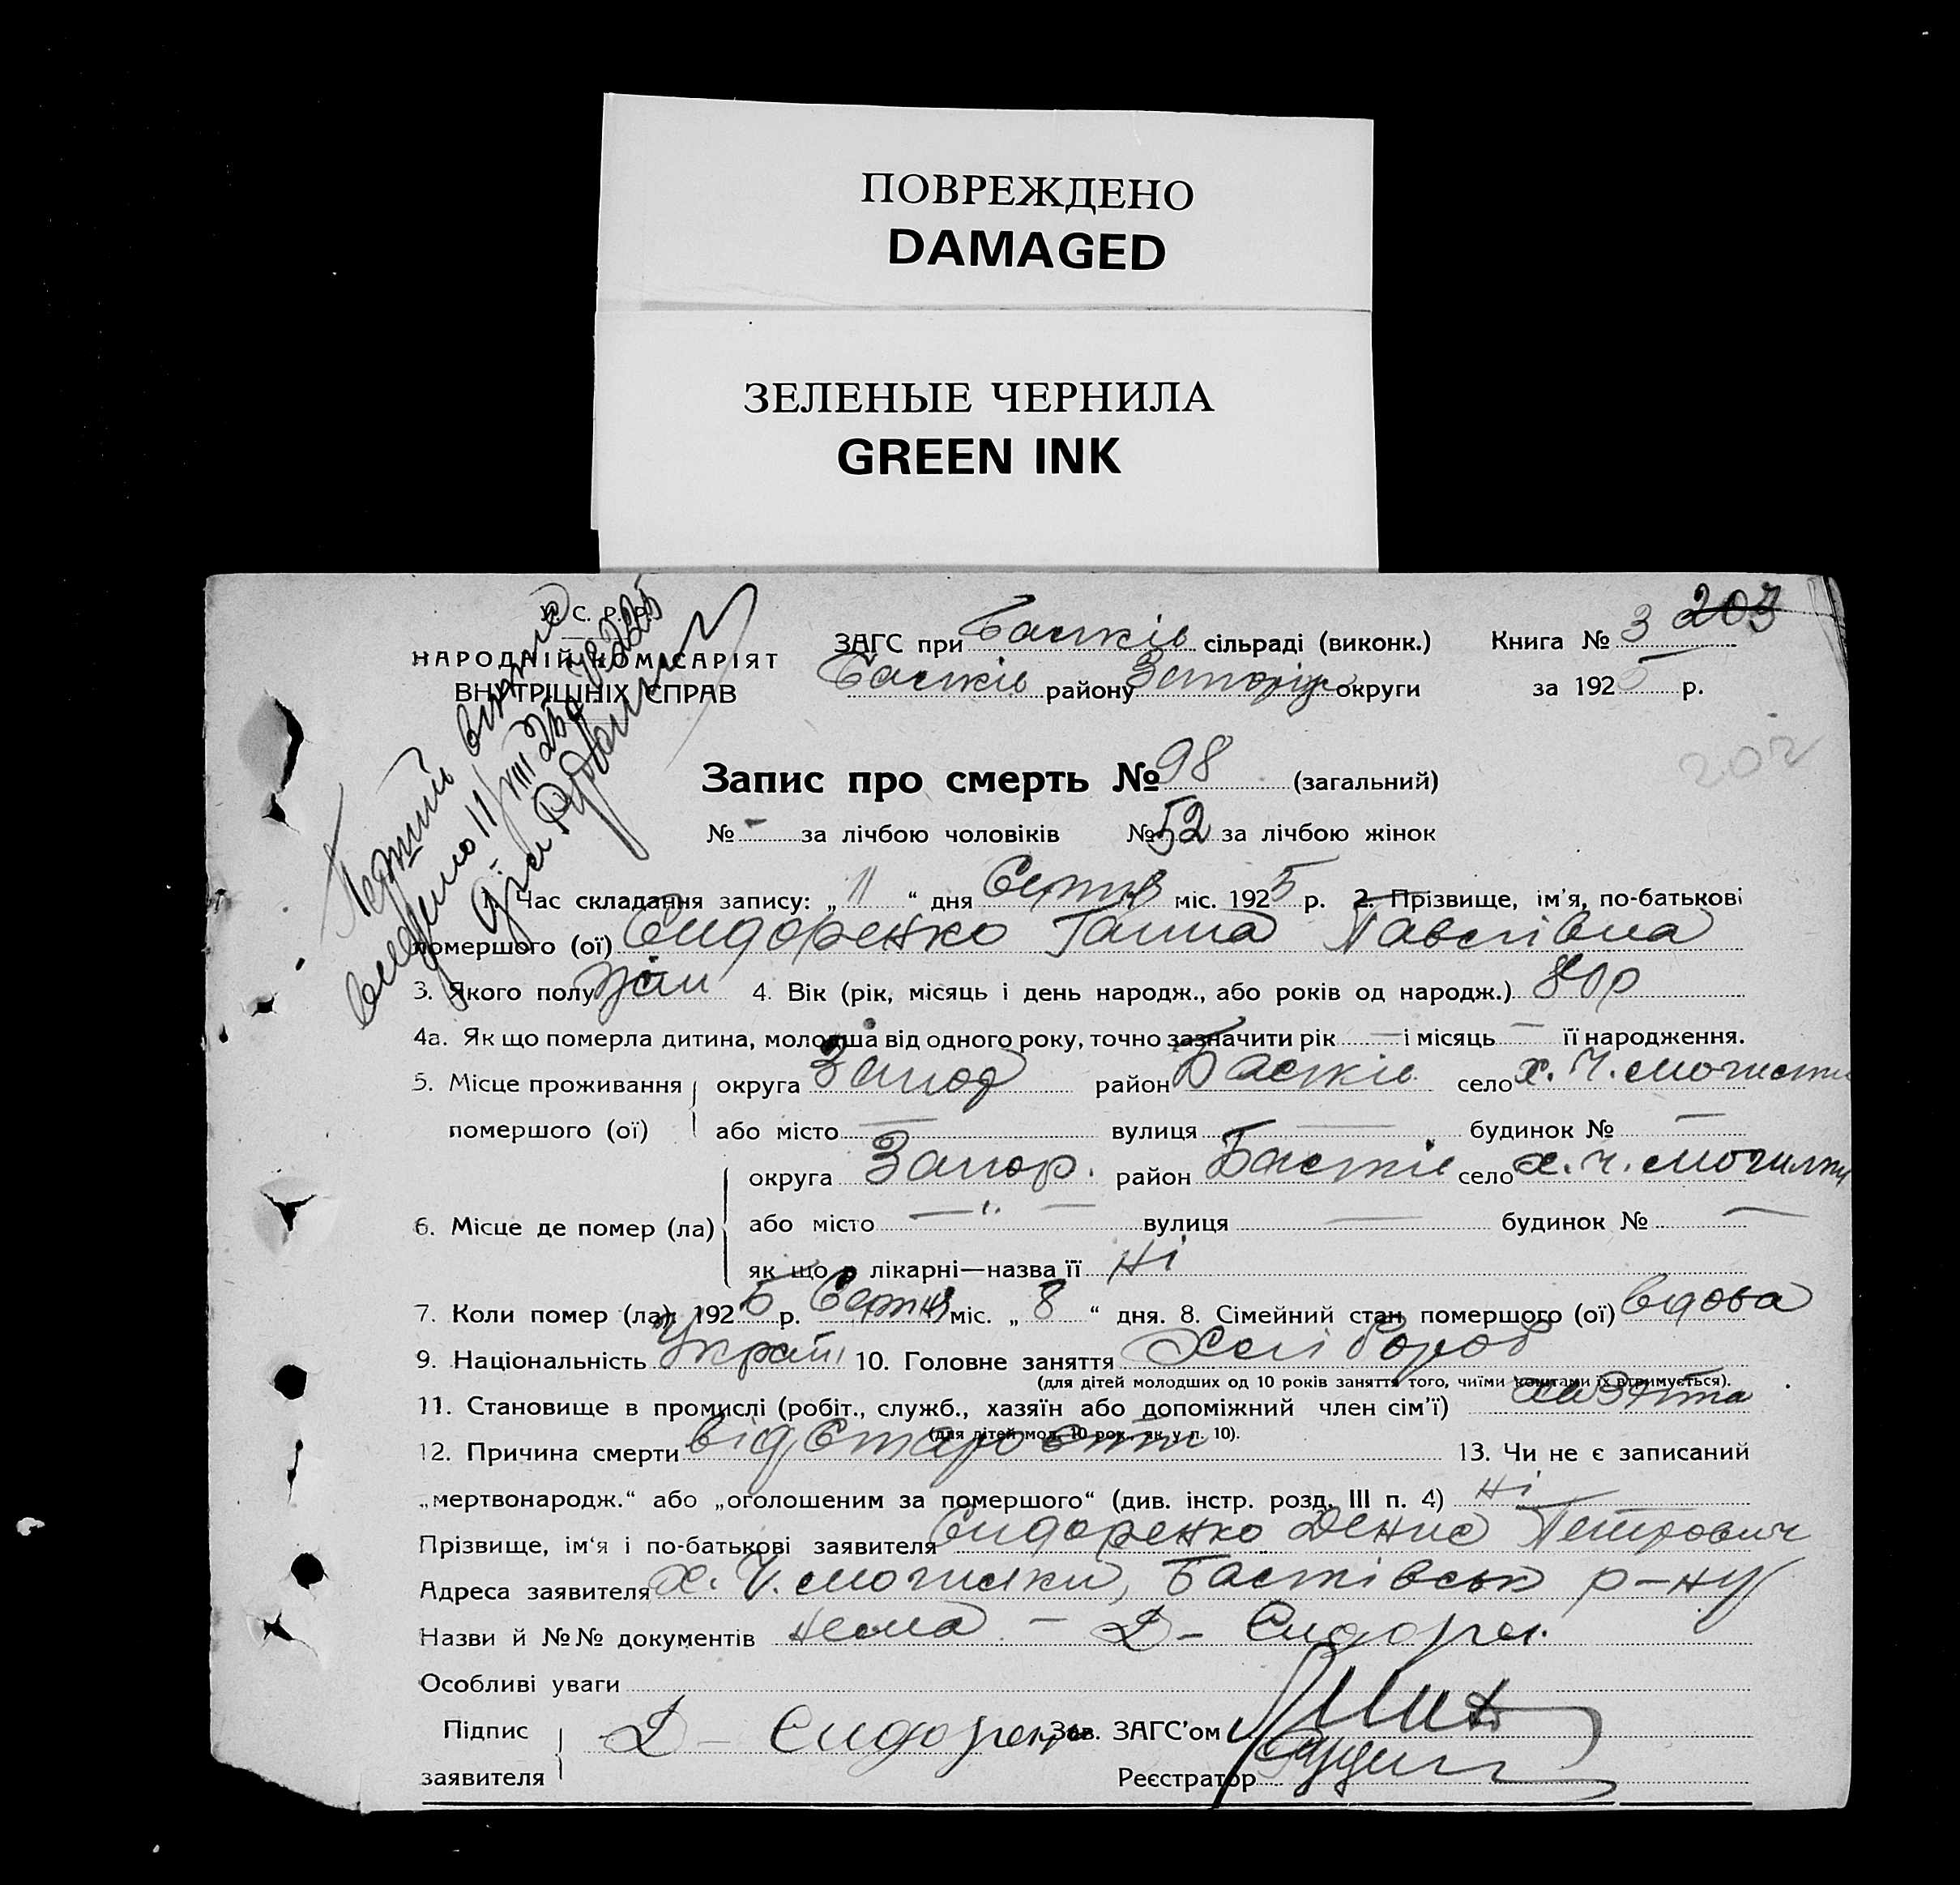 ПОВРЕЖДЕНО
DAMAGED
ЗЕЛЕНЫЕ ЧЕРНИЛА
GREEN INK
У. С. Р. Р. ЗАГС при сільраді (виконк.) Книга № 3 203
НАРОДНІЙ КОМІСАРІЯТ
ВНУТРІШНІХ СПРАВ району округи за 1925 р.
202
Запис про смерть № 98 (загальний)
№ - за лічбою чоловіків № 52 за лічбою жінок
1. Час складання запису: „11“ дня Серпня міс. 1925 р. 2. Прізвище, ім'я, по-батькові
помершого (ої) Сидоренко Ганна Павлівна
3. Якого полу жін 4. Вік (рік, місяць і день народж., або років од народж.) 80р
4а. Як що померла дитина, молодша від одного року, точно зазначити рік — і місяць — її народження.
5. Місце проживання округа Запор район село х. Ч. могилки
помершого (ої) або місто — вулиця — будинок № —
округа Запор. район село х. Ч. могилки
6. Місце де помер (ла) або місто — „ — вулиця — будинок № —
як що в лікарні—назва її Ні
7. Коли помер (ла) 1925 р. Серпня міс. „8“ дня. 8. Сімейний стан помершого (ої) вдова
9. Національність Україн 10. Головне заняття Хлібороб
(для дітей молодших од 10 років заняття того, чиїми коштами їх втримується).
11. Становище в промислі (робіт., служб., хазяїн або допоміжний член сім'ї)
(для дітей мол. 10 рок., як у п. 10).
12. Причина смерти від Старости 13. Чи не є записаний
„мертвонародж.“ або „оголошеним за помершого“ (див. інстр. розд. III п. 4) Ні
Прізвище, ім'я і по-батькові заявителя Сидоренко Денис Петрович
Адреса заявителя х. Ч. могилки, р-ну
Назви й №№ документів нема — Д – Сидорен.
Особливі уваги
Підпис Д – Сидоренко Зав. ЗАГС'ом
заявителя Реєстратор